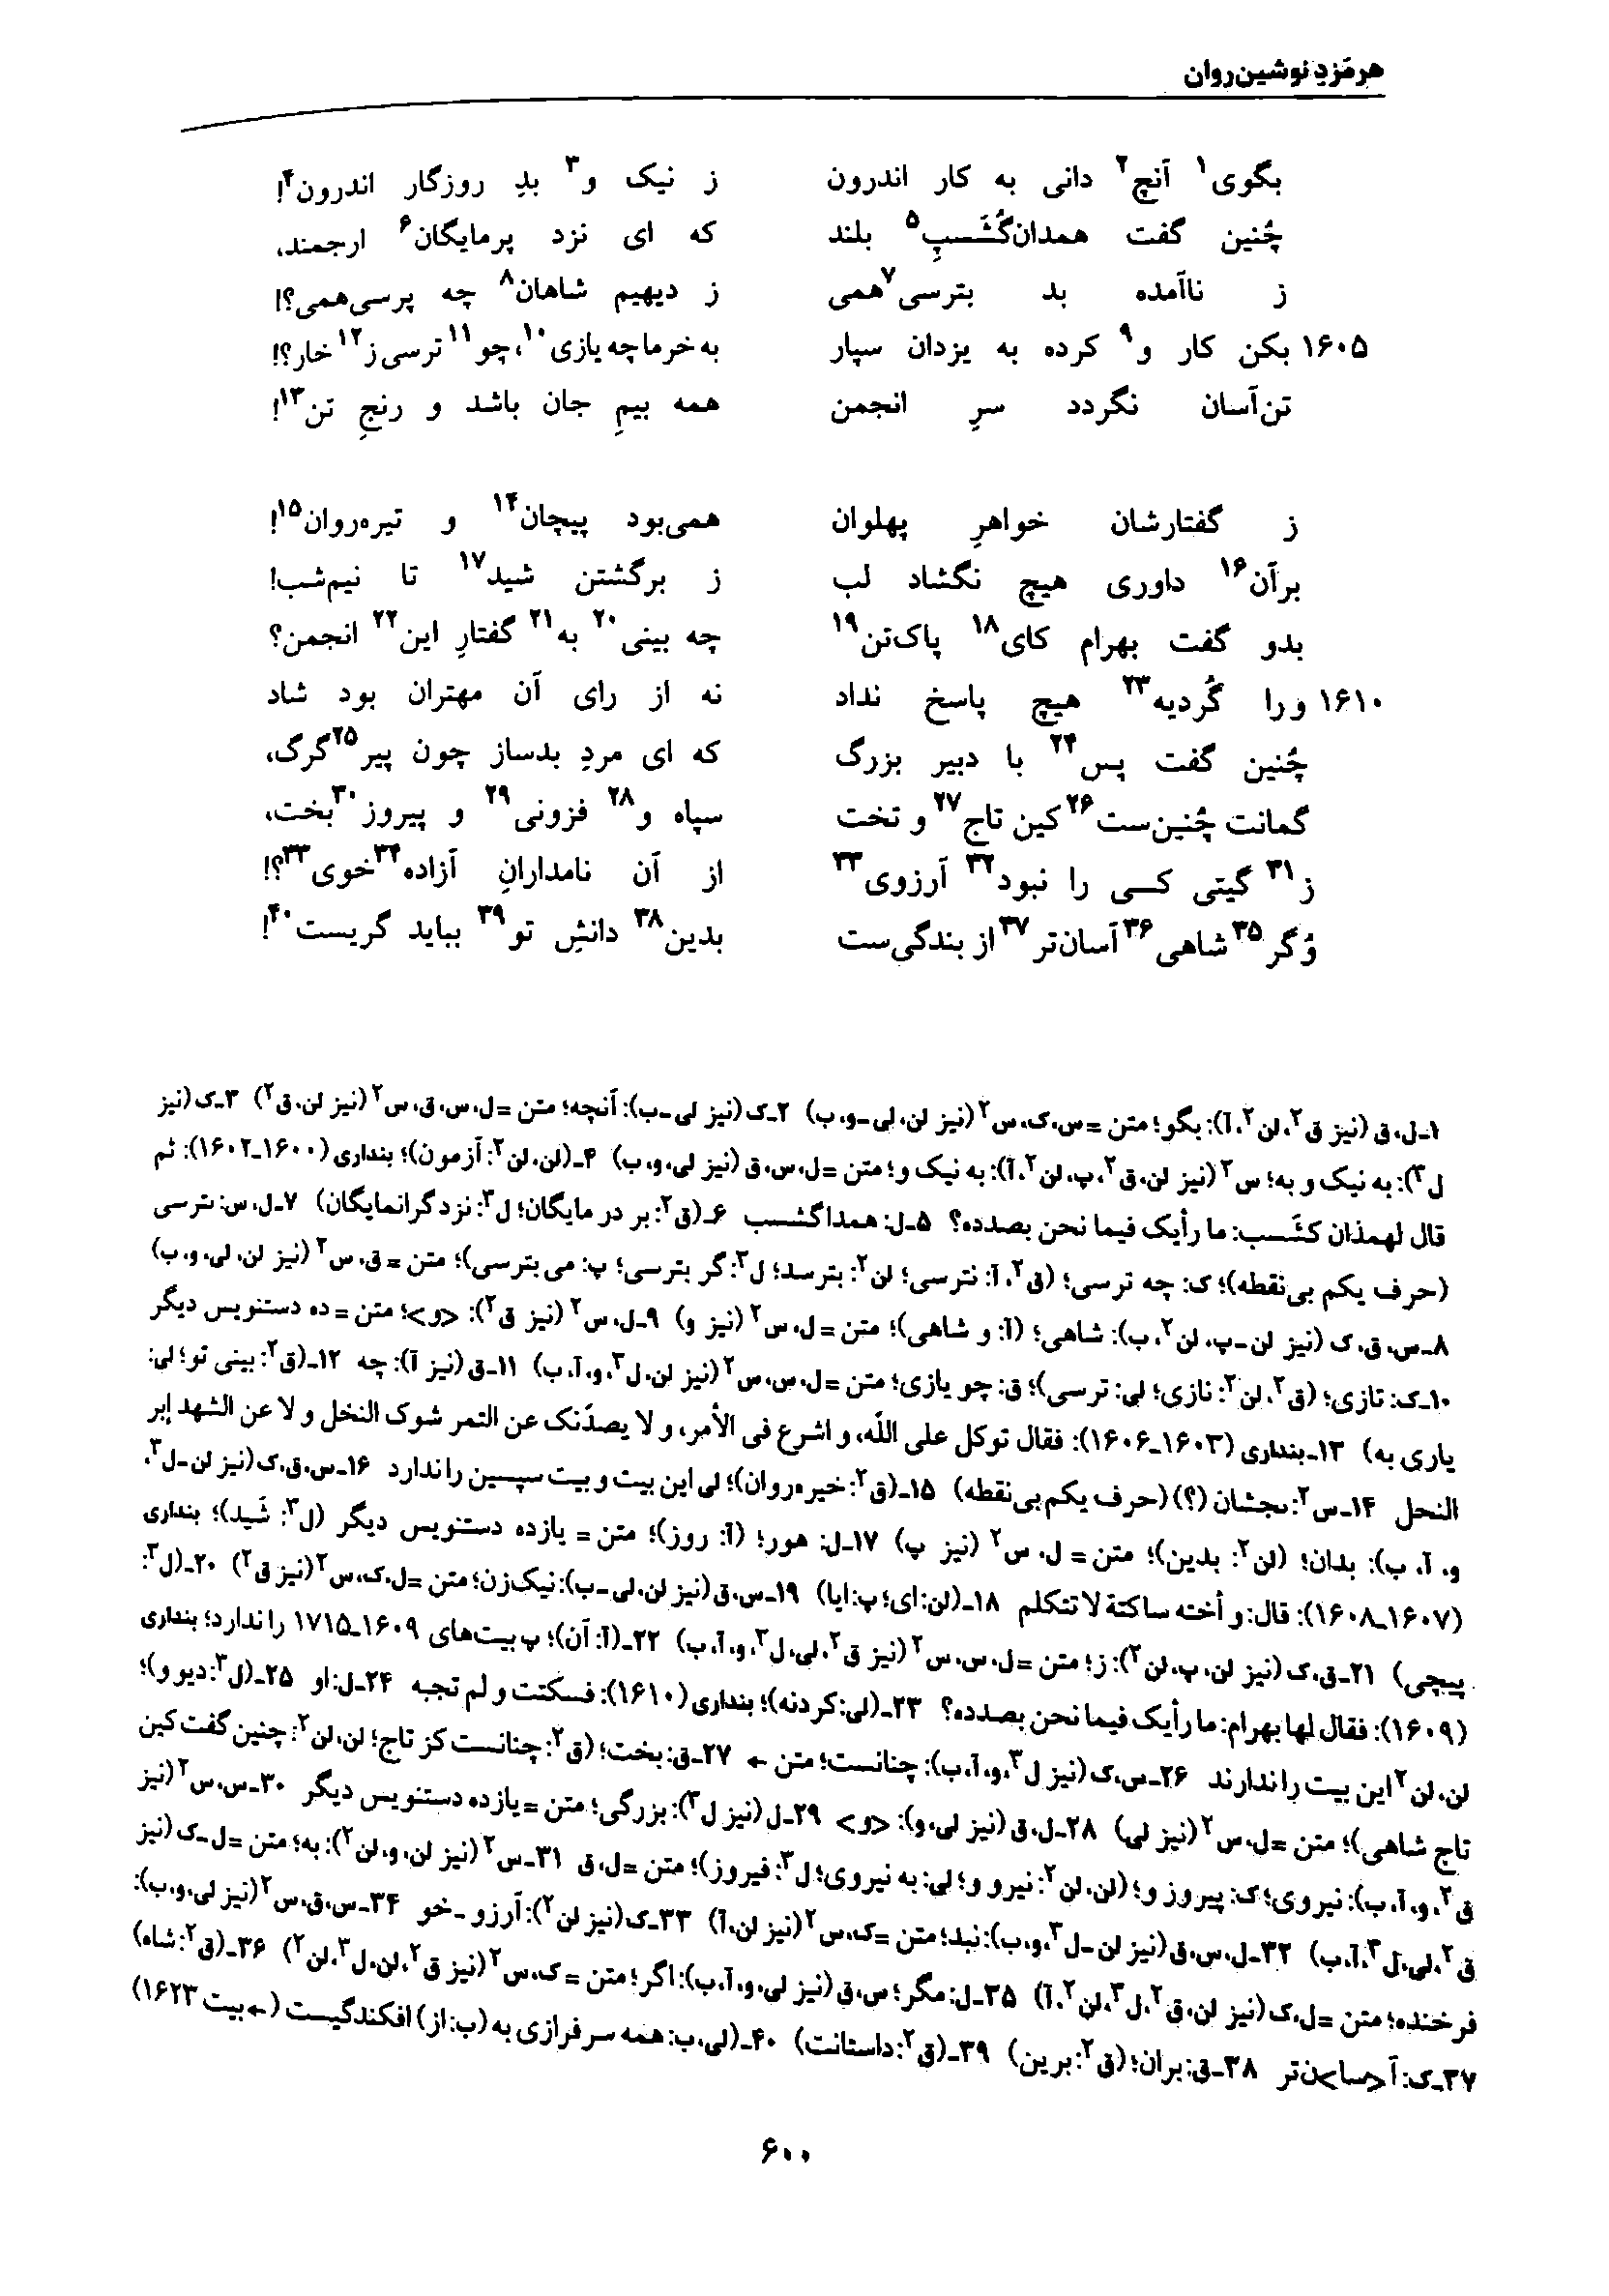 هرمَزدِ نوشین‌روان
بگوی۱ آنچ۲ دانی به کار اندرون ز نیک و۳ بدِ روزگار اندرون۴!
چُنین گفت همدان‌گُشَسپِ۵ بلند که ای نزد پرمایگان۶ ارجمند،
ز ناآمده بد بترسی۷ همی ز دیهیم شاهان۸ چه پرسی‌همی؟!
۱۶۰۵ بکن کار و۹ کرده به یزدان سپار به خرما چه یازی۱۰، چو۱۱ ترسی ز۱۲ خار؟!
تن‌آسان نگردد سرِ انجمن همه بیمِ جان باشد و رنجِ تن۱۳!
ز گفتارشان خواهرِ پهلوان همی‌بود پیچان۱۴ و تیره‌روان۱۵!
برآن۱۶ داوری هیچ نگشاد لب ز برگشتن شید۱۷ تا نیم‌شب!
بدو گفت بهرام کای۱۸ پاک‌تن۱۹ چه بینی۲۰ به۲۱ گفتارِ این۲۲ انجمن؟
۱۶۱۰ ورا گُردیه۲۳ هیچ پاسخ نداد نه از رای آن مهتران بود شاد
چُنین گفت پس۲۴ با دبیر بزرگ که ای مردِ بدساز چون پیر۲۵ گرگ،
گمانت چُنین‌ست۲۶ کین تاج۲۷ و تخت سپاه و۲۸ فزونی۲۹ و پیروز۳۰ بخت،
ز۳۱ گیتی کسی را نبود۳۲ آرزوی۳۳ از آن نامدارانِ آزاده۳۴ خوی۳۳؟!
وُگر۳۵ شاهی۳۶ آسان‌تر۳۷ از بندگی‌ست بدین۳۸ دانشِ تو۳۹ بباید گریست۴۰!
۱ـ ل، ق (نیز ق۲، لن۲، آ): بگو؛ متن = س، ک، س۲ (نیز لن، لی ـ و، ب) ۲ـ ک (نیز لی ـ ب): آنچه؛ متن = ل، س، ق، س۲ (نیز لن، ق۲) ۳ـ ک (نیز
ل۳): به نیک و به؛ س۲ (نیز لن، ق۲، پ، لن۲، آ): به نیک و؛ متن = ل، س، ق (نیز لی، و، ب) ۴ـ (لن، لن۲: آزمون)؛ بنداری (۱۶۰۰ـ۱۶۰۲): ثم
قال لهمذان کشسب: ما رأیک فیما نحن بصدده؟ ۵ـ ل: همداگشسب ۶ـ (ق۲: بر در مایگان؛ ل۳: نزد گرانمایگان) ۷ـ ل، س: ترسی
(حرف یکم بی‌نقطه)؛ ک: چه ترسی؛ (ق۲، آ: نترسی؛ لن۲: بترسد؛ ل۳: گر بترسی؛ پ: می بترسی)؛ متن = ق، س۲ (نیز لن، لی، و، ب)
۸ـ س، ق، ک (نیز لن ـ پ، لن۲، ب): شاهی؛ (آ: و شاهی)؛ متن = ل، س۲ (نیز و) ۹ـ ل، س۲ (نیز ق۲): <و>؛ متن = ده دستنویس دیگر
۱۰ـ ک: تازی؛ (ق۲، لن۲: نازی؛ لی: ترسی)؛ ق: چو یازی؛ متن = ل، س، س۲ (نیز لن، ل۳، و، آ، ب) ۱۱ـ ق (نیز آ): چه ۱۲ـ (ق۲: بینی تو؛ لی:
یاری به) ۱۳ـ بنداری (۱۶۰۳ـ۱۶۰۶): فقال توکل علی الله، و اشرع فی الأمر، و لا یصدّنک عن التمر شوک النخل و لا عن الشهد إبر
النحل ۱۴ـ س۲: بجشان (؟) (حرف یکم بی‌نقطه) ۱۵ـ (ق۲: خیره‌روان)؛ لی این بیت و بیت سپسین را ندارد ۱۶ـ س، ق، ک (نیز لن ـ ل۳،
و، آ، ب): بدان؛ (لن۲: بدین)؛ متن = ل، س۲ (نیز پ) ۱۷ـ ل: هور؛ (آ: روز)؛ متن = یازده دستنویس دیگر (ل۳: شَید)؛ بنداری
(۱۶۰۷ـ۱۶۰۸): قال: و أخته ساکتة لا تتکلم ۱۸ـ (لن: ای؛ پ: ایا) ۱۹ـ س، ق (نیز لن، لی ـ ب): نیک‌زن؛ متن = ل، ک، س۲ (نیز ق۲) ۲۰ـ (ل۳:
پیچی) ۲۱ـ ق، ک (نیز لن، پ، لن۲): ز؛ متن = ل، س، س۲ (نیز ق۲، لی، ل۳، و، آ، ب) ۲۲ـ (آ: آن)؛ پ بیت‌های ۱۶۰۹ـ۱۷۱۵ را ندارد؛ بنداری
(۱۶۰۹): فقال لها بهرام: ما رأیک فیما نحن بصدده؟ ۲۳ـ (لی: کردنه)؛ بنداری (۱۶۱۰): فسکتت و لم تجبه ۲۴ـ ل: او ۲۵ـ (ل۳: دیو و)؛
لن، لن۲ این بیت را ندارند ۲۶ـ س، ک (نیز ل۳، و، آ، ب): چنانست؛ متن ← ۲۷ـ ق: بخت؛ (ق۲: چنانست کز تاج؛ لن، لن۲: چنین گفت کین
تاج شاهی)؛ متن = ل، س۲ (نیز لی) ۲۸ـ ل، ق (نیز لی، و): <و> ۲۹ـ ل (نیز ل۳): بزرگی؛ متن = یازده دستنویس دیگر ۳۰ـ س، س۲ (نیز
ق۲، و، آ، ب): نیروی؛ ک: پیروز و؛ (لن، لن۲: نیرو و؛ لی: به نیروی؛ ل۳: فیروز)؛ متن = ل، ق ۳۱ـ س۲ (نیز لن، و، لن۲): به؛ متن = ل ـ ک (نیز
ق۲، لی، ل۳، آ، ب) ۳۲ـ ل، س، ق (نیز لن ـ ل۳، و، ب): نبد؛ متن = ک، س۲ (نیز لن، آ) ۳۳ـ ک (نیز لن۲): آرزو ـ خو ۳۴ـ س، ق، س۲ (نیز لی، و، ب):
فرخنده؛ متن = ل، ک (نیز لن، ق۲، ل۳، لن۲، آ) ۳۵ـ ل: مگر؛ س، ق (نیز لی، و، آ، ب): اگر؛ متن = ک، س۲ (نیز ق۲، لن، ل۳، لن۲) ۳۶ـ (ق۲: شاه)
۳۷ـ ک: آ<سا>ن‌تر ۳۸ـ ق: بران؛ (ق۲: برین) ۳۹ـ (ق۲: داستانت) ۴۰ـ (لی، ب: همه سرفرازی به (ب: از) افکندگیست (← بیت ۱۶۲۳)
۶۰۰